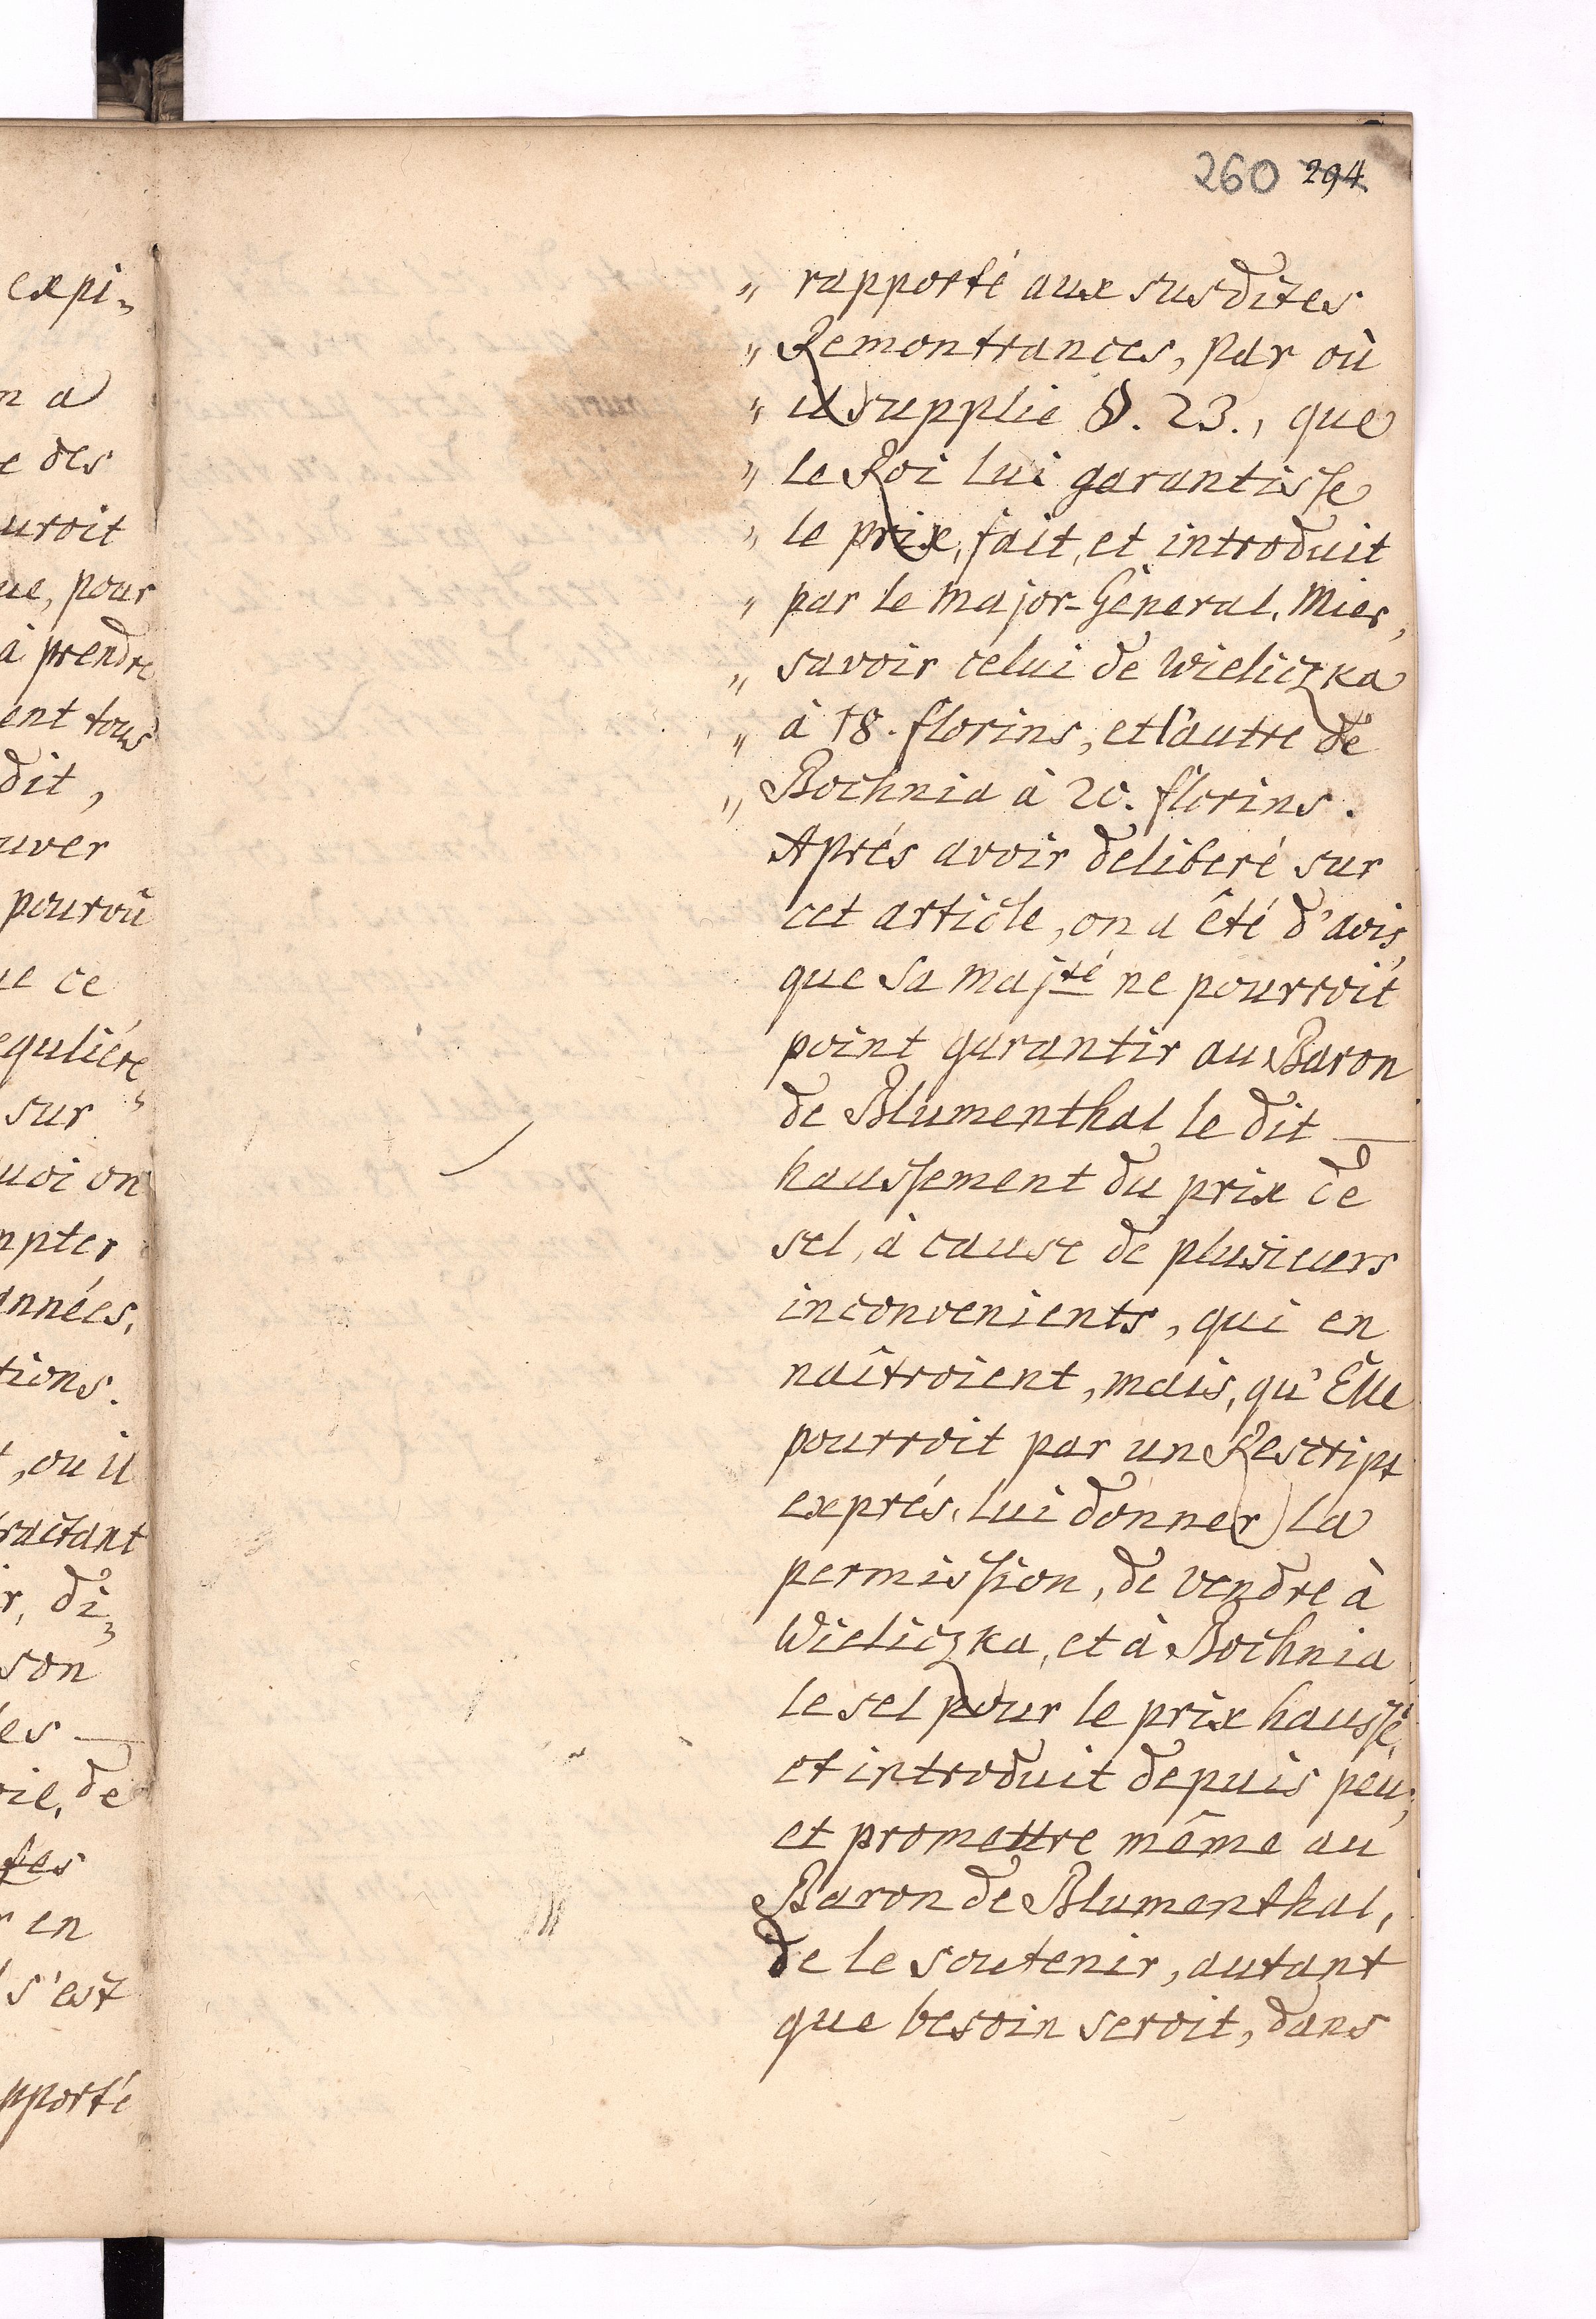 expi=
n a
e des
uroit
ue, pour
à prendre
ent tous
dit,
uver
pourvû
ue ce
eguliére
sur
uoi on
mpter
années,
tions.
t, ou il
ractant
r, di=
son
les
oie, de
fes
r en
s'est
pporté
260 294.
" rapporté aux susdites
" Remontrances, par où
" il supplie §. 23., que
" le Roi lui garantisse
" le prix, fait, et introduit
" par le Major-Géneral, Mier,
" savoir celui de Wieliczka
" à 18. florins, et l'autre de
" Bochnia à 20. florins.
Aprés avoir deliberé sur
cet article, on a êté d'avis,
que Sa Majté ne pourroit
point garantir au Baron
de Blumenthal le dit
haussement du prix de
sel, à cause de plusieurs
inconvenients, qui en
naîtroient, mais, qu'Elle
pourroit par un Rescript
exprés, lui donner la
permission, de vendre à
Wieliczka, et à Bochnia
le sel pour le prix haussé,
et introduit depuis peu,
et promettre même au
Baron de Blumenthal,
de le soutenir, autant
que besoin seroit, dans